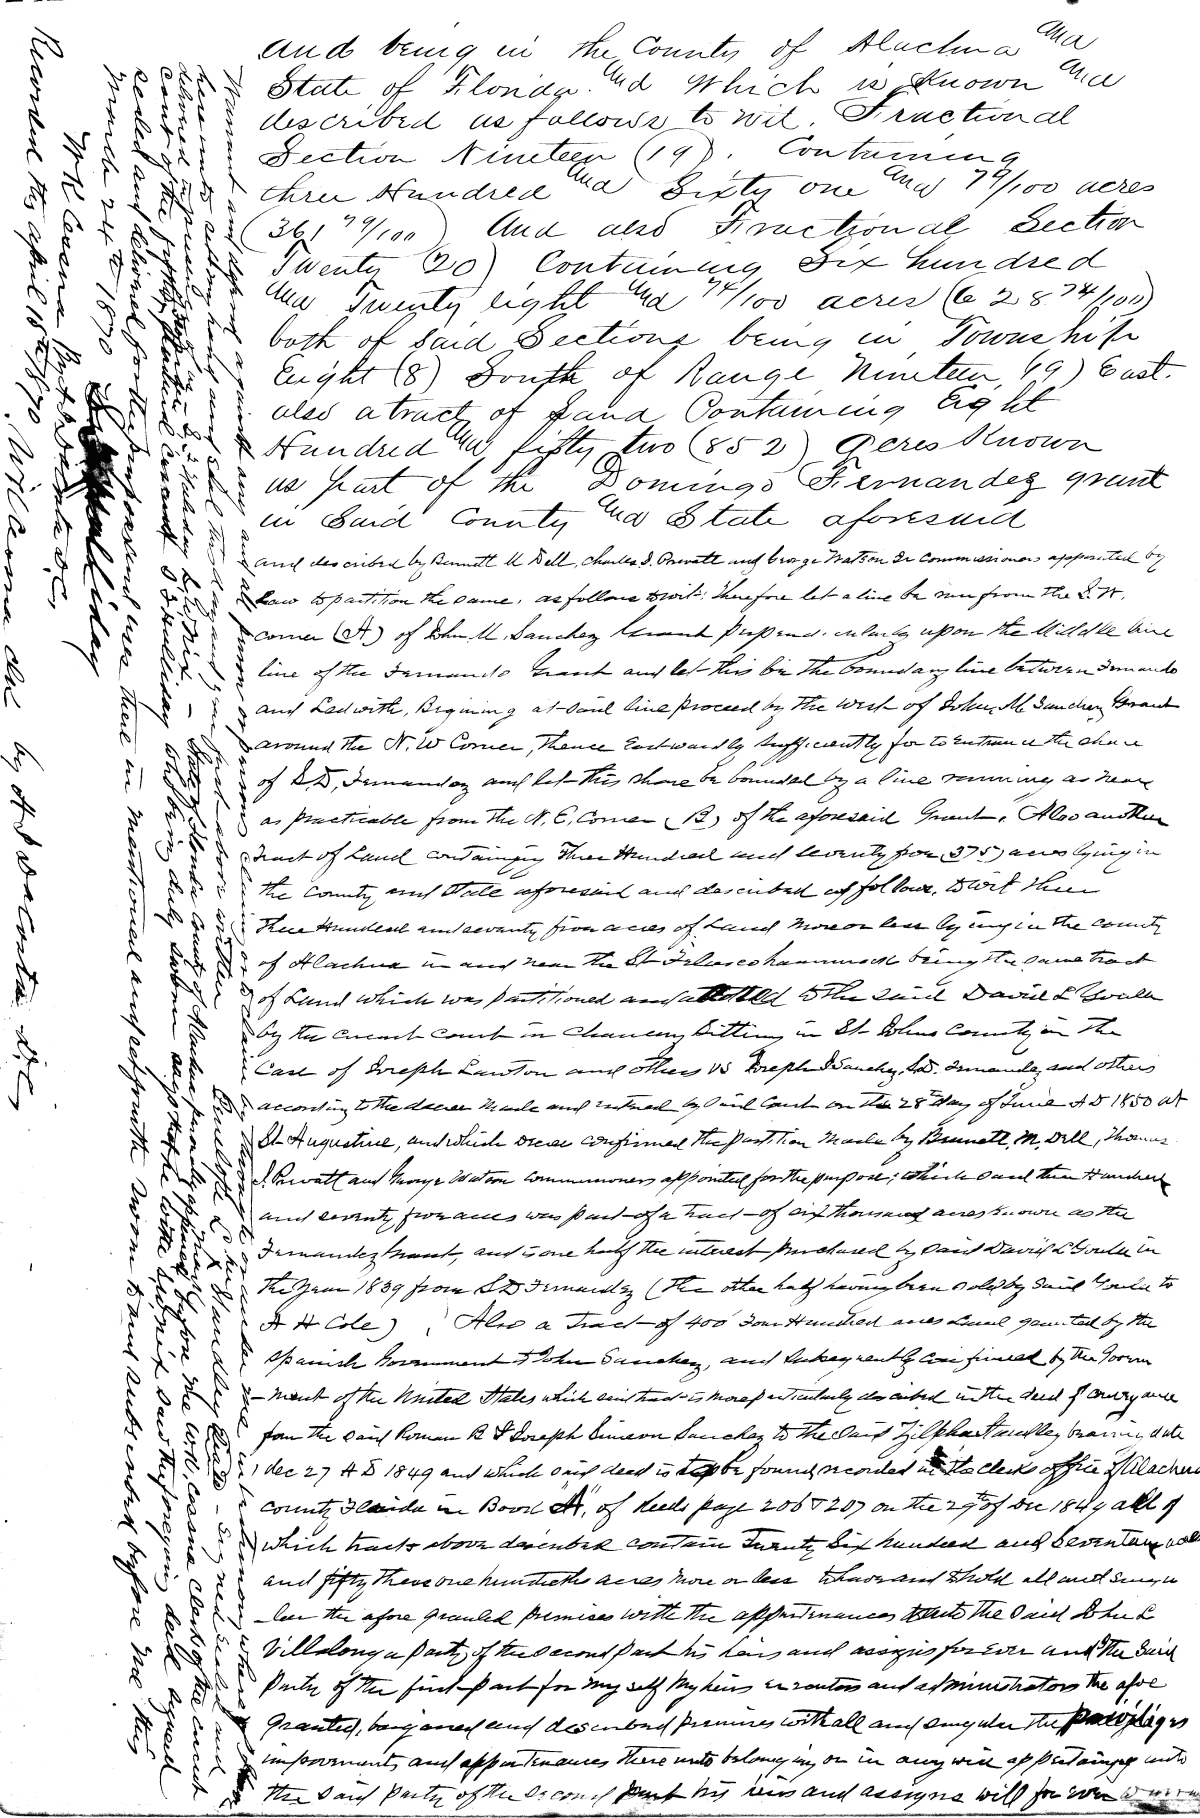 and being in the County of Alachua and
State of Florida. and Which is Known and
described as follows to wit. Fractional
Section Nineteen (19). Containing
three Hundred and Sixty one and 79/100 acres
(361 79/100) And also Fractional Section
Twenty (20) Containing Six hundred
and Twenty eight and 74/100 acres (628 74/100)
both of said Sections being in Township
Eight (8) South of Range Nineteen (19) East.
also a tract of Land Containing Eight
Hundred and fifty two (852) Acres Known
as part of the Domingo Fernandez grant
in Said County and State aforesaid
and described by Bennett M Dell, Charles S. Prevatt and George Watson Commissioners appointed by
Law to partition the same, as follows towit: Therefore let a line be run from the S. W.
corner (A) of John M. Sanchez Grant upon the Middle line
line of the Fernando Grant and let this be the boundary line between Fernando
and Ledwith, Begining at said line proceed by the west of John M Sanchez Grant
around the N. W Corner, thence Eastwardly sufficiently far to the share
of S. D. Fernandez and let this share be bounded by a line running as near
as practicable from the N. E. Corner (B) of the aforesaid Grant. Also another
Tract of Land containing Three Hundred and seventy five (375) acres lying in
the County and State aforesaid and described as follows, towit three
Three Hundred and seventy five acres of Land more or less lying in the county
of Alachua in and near the San Felasco hammock being the same tract
of Land which was partitioned and allotted to the said David L Goulee
by the circuit court in chancery Sitting in St Johns County in the
Case of Joseph Lawton and others vs Joseph S Sanchez, S.D. Fernandez and others
according to the decree made and entered by said Court on the 28th day of June AD 1850 at
St Augustine, and which decree confirmed the partition made by Bennett. M. Dell, Thomas
S. Prevatt and George Watson commissioners appointed for the purpose; which said three Hundred
and seventy five acres was part of a tract of six thousand acres known as the
Fernandez Grant, and is one half the interest purchased by said David L Goulee in
the Year 1839 from S D Fernandez (the other half having been sold by said Goulee to
A H Cole) Also a Tract of 400 Four Hundred acres Land granted by the
Spanish Government to John Sanchez, and subsequently confirmed by the Govern
-ment of the United States which said tract is more particularly described in the deed of conveyance
from the said Roman B & Joseph Simeon Sanchez to the said Zilpha Standley bearing date
dec 27 AD 1849 and which said deed is to be found recorded in the clerks office of Alachua
County Florida in Book "A", of deeds page 206 & 207 on the 29th of Dec 1849 all of
which tracts above described contain Twenty Six hundred and Seventeen acres
and fifty three one hundredths acres more or less to have and to hold all and singu
-lar the afore granted premises with the appurtenances unto the said John L
Villalonga party of the second part his heirs and assigns forever and I the said
Party of the first part for my self my heirs executors and administrators the afore
Granted, bargained and described premises with all and singular the priviliges
improvments and appurtenances there unto belonging or in any wise appertaining unto
the said party of the second part his heirs and assigns will for ever warrant
Warrant and defend against any and all person or persons claiming or to claim
here unto set my hand and seal the day and year first above written
Signed Sealed and
delivered in presence
State of Florida County of Alachua personally appeared before me W. K. Cessna clerk of the circuit
court of the
who being duly sworn says that he saw the foregoing deed signed
sealed and delivered for the purposes and uses there in mentioned and set forth sworn to and subscribed before me this
March 24th 1870
W K Cessna
Halliday
Recorded this April 18th 1870, W K Cessna Clk by H F Dacosta D. C.